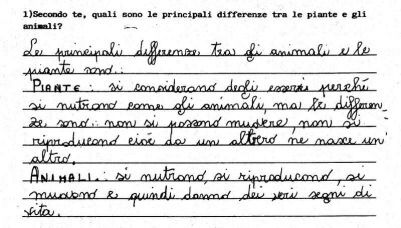 1)Secondo te, quali sono le principali differenze tra le piante e gli
animali?
Le principali differenze tra gli animali e le
piante sono:
PIANTE: si considerano degli esseri perché
si nutrono come gli animali, ma le differen-
ze sono: non si possono muovere, non si
riproducono cioè da un albero ne nasce un
altro.
ANIMALI: si nutrono, si riproducono, si
muovono e quindi danno dei veri segni di
vita.